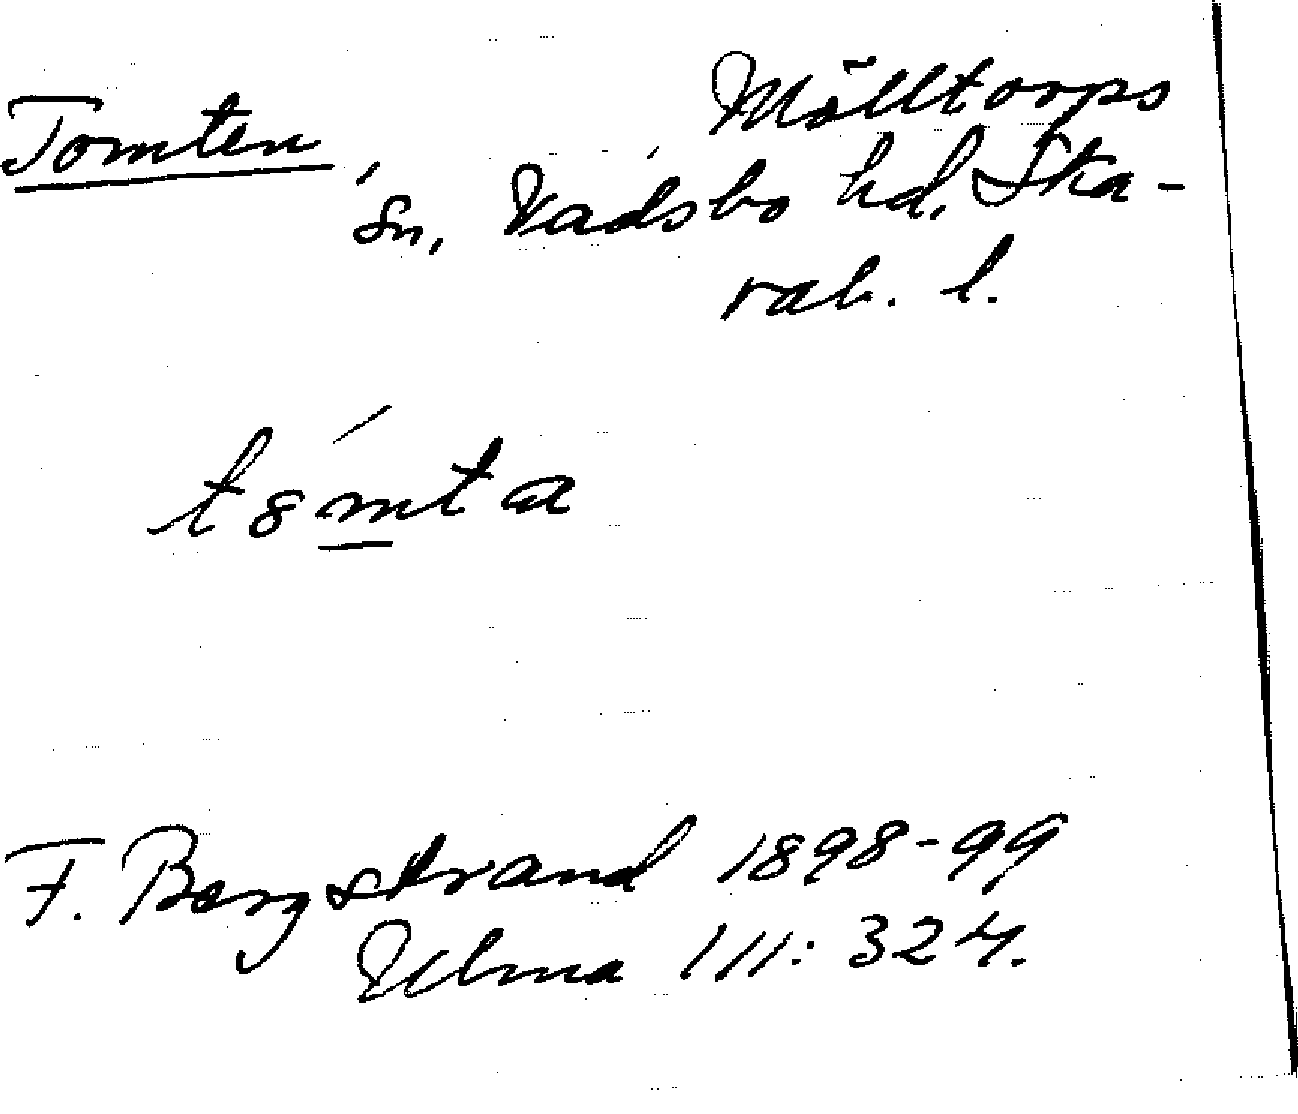 Tomten, Mölltorps
sn, Vadsbo hd, Ska-
rab. l.
t8mta
F. Bergstrand 1898-99
Ulma 111:324.